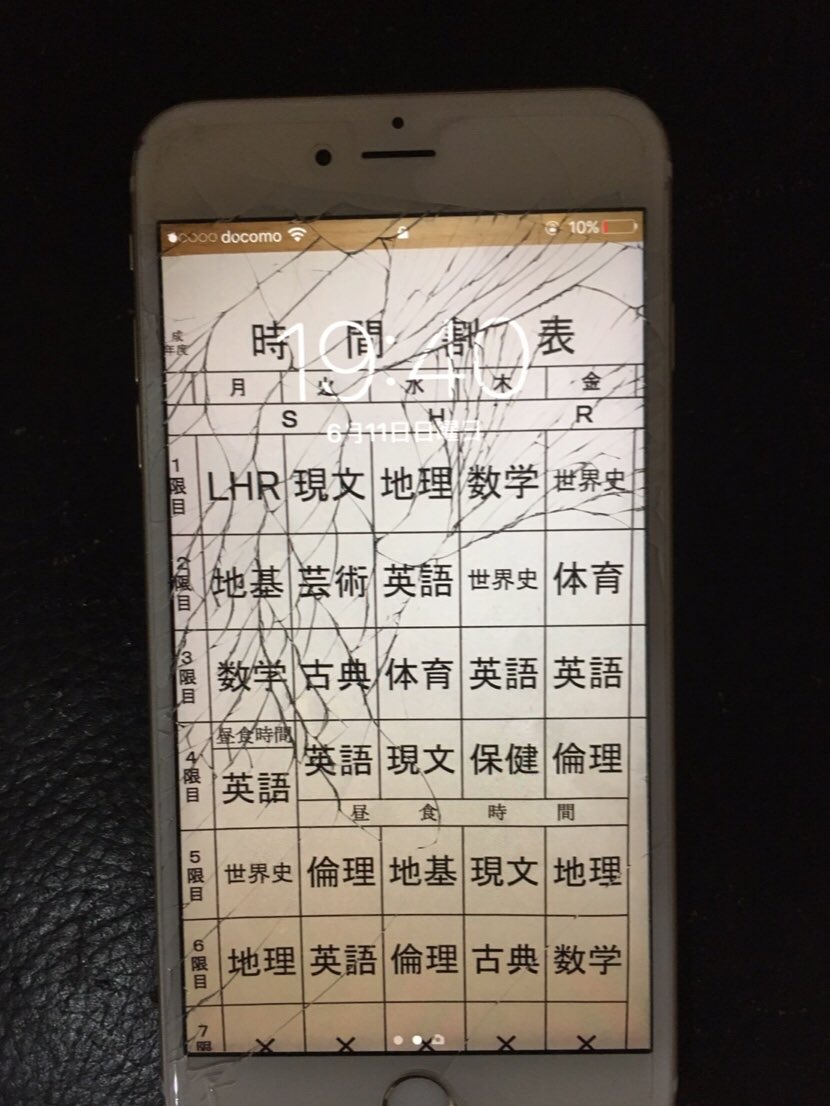 docomo 10%
成
年度
時間割表
19:40
月 火 水 木 金
S H R
6月11日日曜日
1限目 LHR 現文 地理 数学 世界史
2限目 地基 芸術 英語 世界史 体育
3限目 数学 古典 体育 英語 英語
昼食時間
4限目 英語 英語 現文 保健 倫理
昼食時間
5限目 世界史 倫理 地基 現文 地理
6限目 地理 英語 倫理 古典 数学
7限 × × × × ×